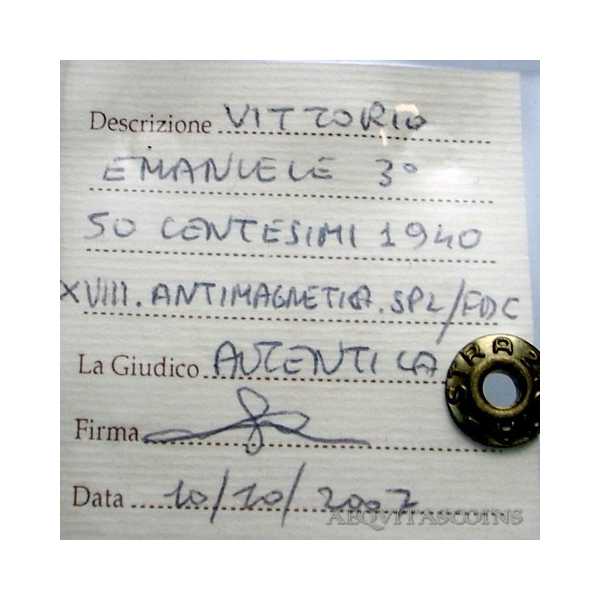 Descrizione VITTORIO
EMANUELE 3°
50 CENTESIMI 1940
XVIII. ANTIMAGNETICA. SPL/FDC
La Giudico AUTENTICA
Firma
Data 10/10/2007
AEQVITASCOINS